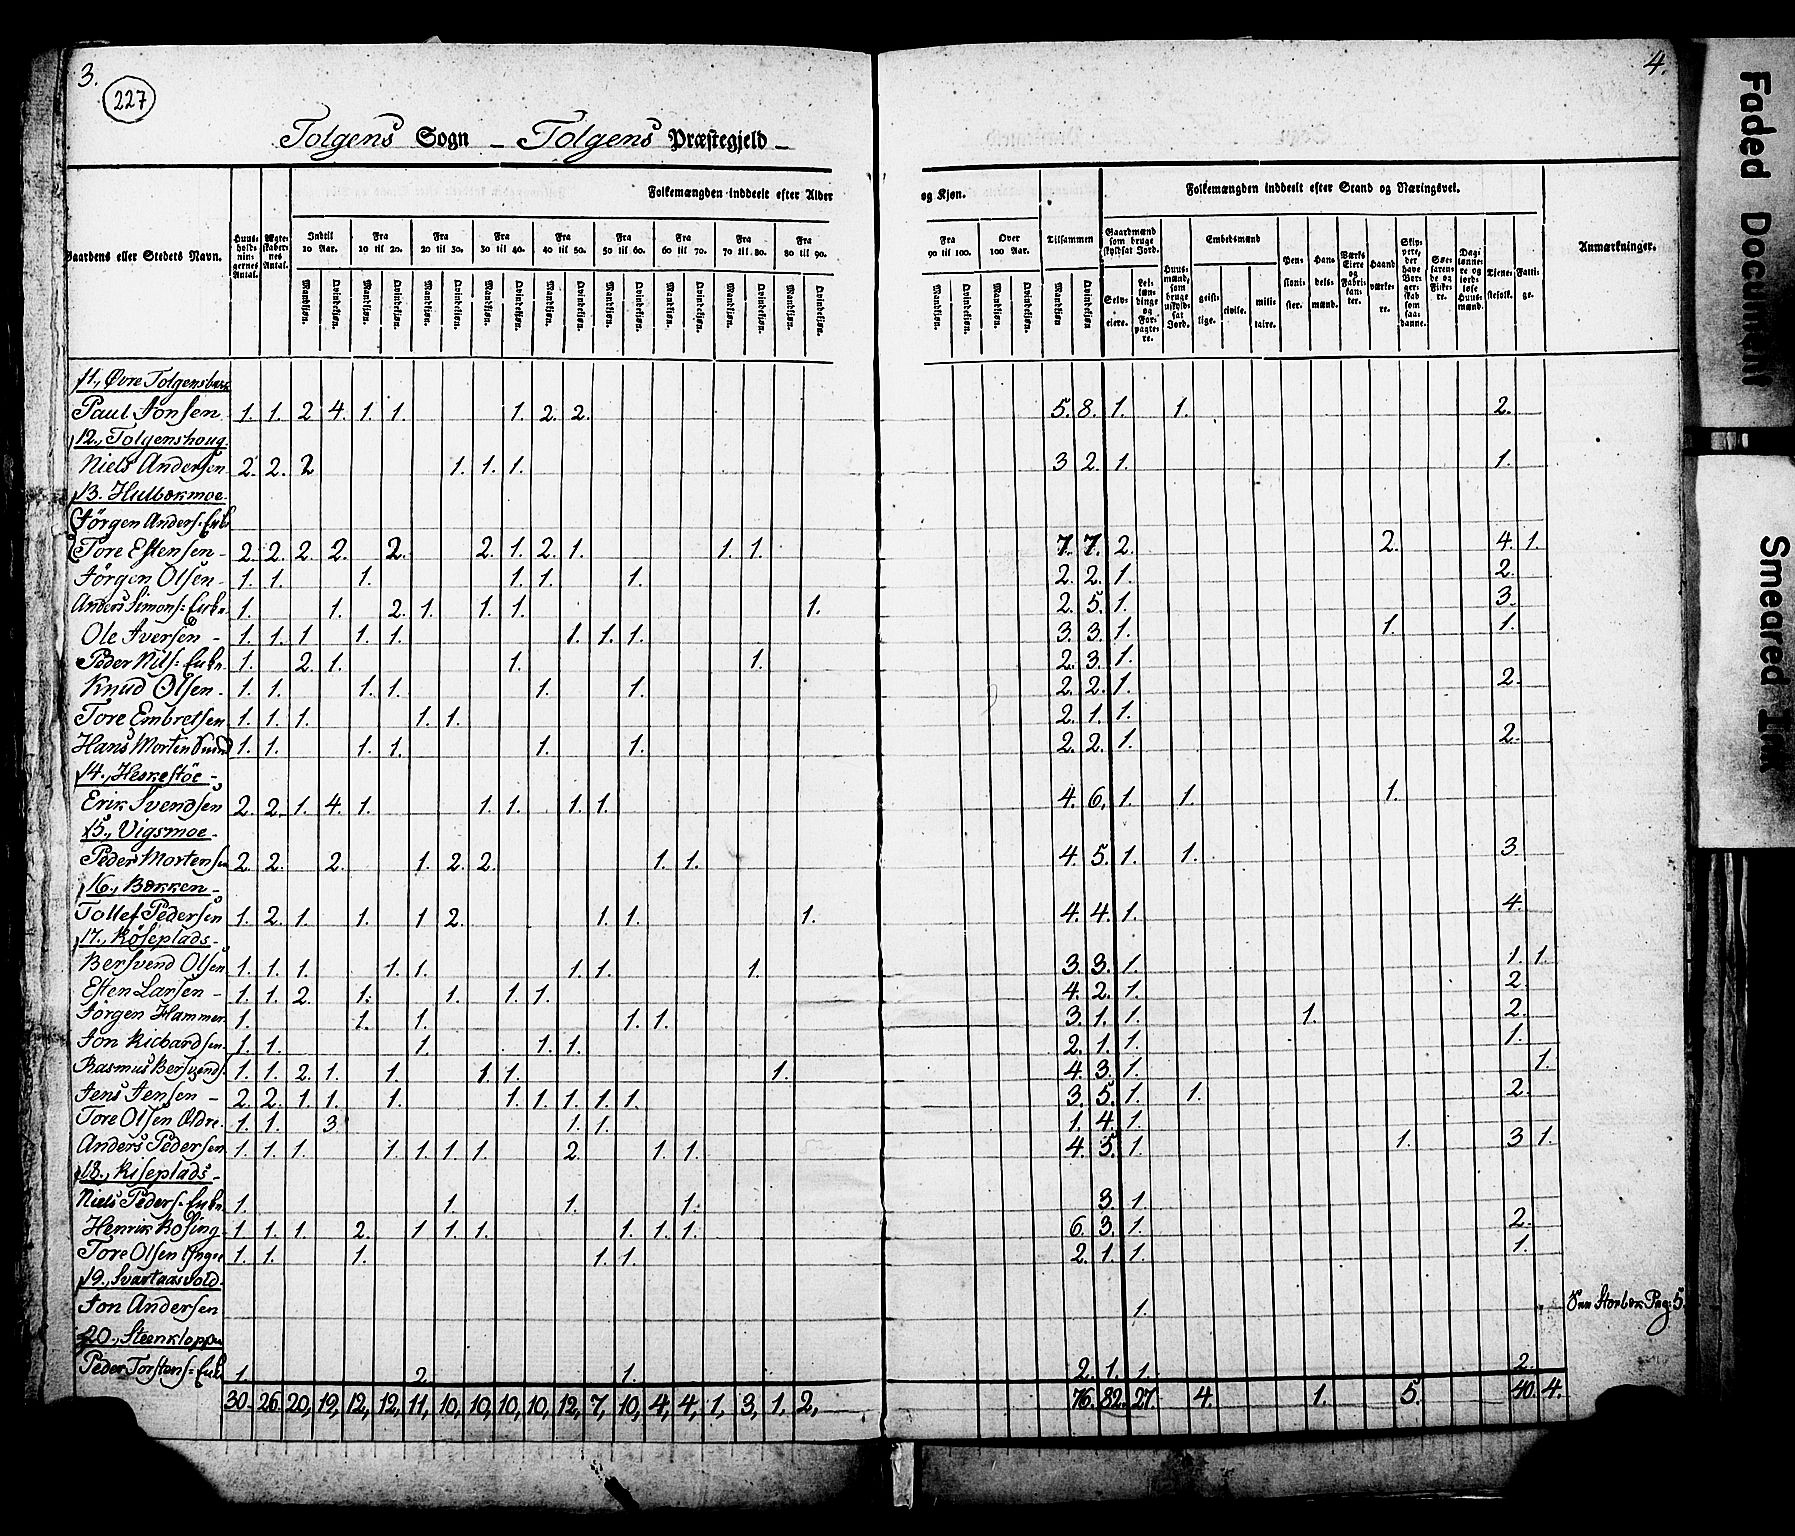 3.
227
4.
Tolgens Sogn – Tolgens Præstegjeld –
Gaardens eller Stedets Navn.
Huusholdningernes Antal.
Ægteskabernes Antal.
Folkemængden inddeelt efter Alder og Kjøn.
Indtil 10 Aar. Fra 10 til 20. Fra 20 til 30. Fra 30 til 40. Fra 40 til 50. Fra 50 til 60. Fra 60 til 70. Fra 70 til 80. Fra 80 til 90. Fra 90 til 100. Over 100 Aar. Tilsammen
Mandkjøn. Qvindekjøn.
Folkemængden inddeelt efter Stand og Næringsvei.
Gaardmænd som bruge skyldsat Jord.
Selveiere.
Leilændinge og Forpagtere.
Huusmænd, som bruge uskyldsat Jord.
Embedsmænd
geistlige. civile. militaire.
Pensionister.
Handelsmænd.
Værks Eiere og Fabrikanter.
Haandværkere.
Skippere, der have Borgerskab som saadanne.
Søefarende og Fiskere.
Daglønnere og jordløse Huusmænd.
Tjenestefolk.
Fattige.
Anmærkninger.
11., Øvre Tolgensbakk
Paul Jonsen 1. 1. 2 4. 1. 1. 1. 2. 2. 5. 8. 1. 1. 2.
12., Tolgenshoug.
Niels Andersen 2. 2. 2 1. 1. 1. 3 2. 1. 1.
13. Hulbækmoe.
Jörgen Anders: Enke
Tore Estensen – 2. 2. 2. 2. 2. 2. 1. 2. 1. 1. 1. 7. 7. 2. 2. 4. 1.
Jörgen Olsen – 1. 1. 1. 1. 1. 1. 2. 2. 1. 2.
Anders Simons: Enke 1. 1. 2. 1. 1. 1. 1. 2. 5. 1. 3.
Ole Iversen – 1. 1. 1. 1. 1. 1. 1. 1. 3. 3. 1. 1. 1.
Peder Nils: Enke. 1. 2. 1. 1. 1. 2. 3. 1.
Knud Olsen – 1. 1. 1. 1. 1. 1. 2. 2. 1. 2.
Tore Embretsen 1. 1. 1. 1. 1. 2. 1. 1.
Hans Morten 1. 1. 1. 1. 1. 1. 2. 2. 1. 2.
14., –
Erik Svendsen 2. 2. 1. 4. 1. 1. 1. 1. 1. 4. 6. 1. 1. 1.
15., Vigsmoe –
Peder Mortensen 2. 2. 2. 1. 2. 2. 1. 1. 4. 5. 1. 1. 3.
16., Bækken –
Tollef Pedersen 1. 2. 1. 1. 1 2. 1. 1. 1. 4. 4. 1. 4.
17., Röseplads –
Bersvend Olsen 1. 1. 1. 1. 1. 1. 1. 1. 3. 3. 1. 1. 1.
Esten Larsen – 1. 1. 2. 1. 1. 1. 1. 4. 2. 1. 2.
Jörgen Hammer 1. 1. 1. 1. 1. 3. 1. 1. 1. 2.
Jon Richardsen 1. 1. 1. 1. 1. 2. 1. 1. 1.
Rasmus Bersvends: 1. 1. 2. 1. 1. 1. 1. 1. 4. 3. 1. 1.
Jens Jensen – 2. 2. 1. 1. 1. 1. 1. 1. 1. 1. 3. 5. 1. 1. 2.
Tore Olsen Ældre. 1. 1. 3 1. 1. 1. 4. 1.
Anders Pedersen 1. 1. 1. 1. 1. 1. 1. 2. 1. 1. 4. 5. 1. 1. 3 1.
18., Riseplads –
Niels Peders: Enke 1. 1. 1. 1. 3. 1.
Henrik Rosing 1. 1. 1. 2. 1 1. 1. 1. 1. 1. 6. 3. 1. 2.
Tore Olsen Yngre 1. 1. 1. 1. 1. 2. 1. 1. 1.
19., Svartaasvold.
Jon Andersen 1. Storbæk Pag: 5.
20., Steenkloppen
Peder Torstens: Enke 1. 2 1. 2. 1. 1. 2.
30. 26. 20, 19, 12, 12, 11, 10, 10, 10, 10, 12, 7, 10, 4, 4, 1, 3, 1, 2, 76. 82. 27. 4. 1. 5. 40. 4.
Faded Document
Smeared Ink